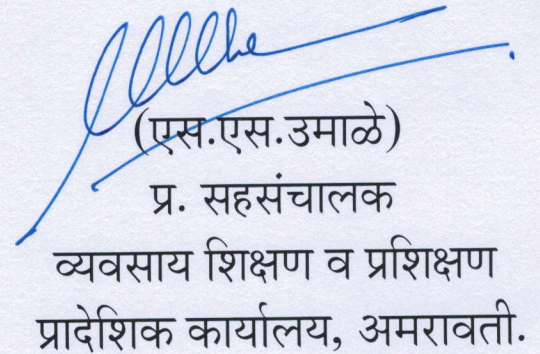 (एस.एस.उमाळे)
प्र. सहसंचालक
व्यवसाय शिक्षण व प्रशिक्षण
प्रादेशिक कार्यालय, अमरावती.